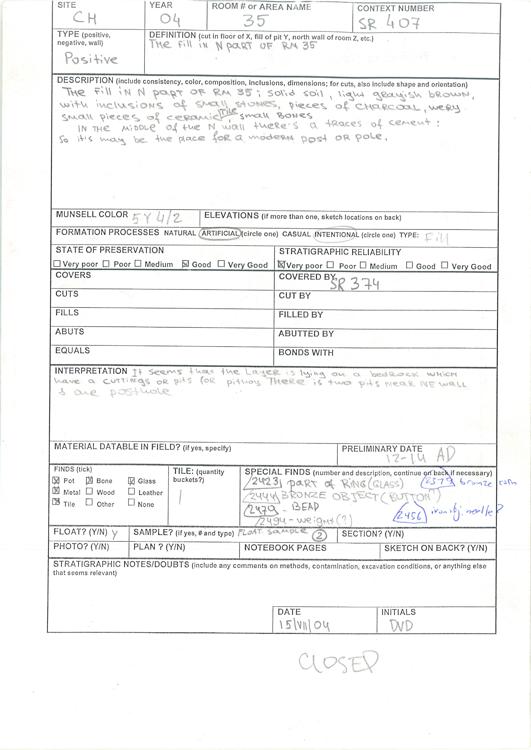 SITE YEAR ROOM # or AREA NAME CONTEXT NUMBER
CH 04 35 SR 407
TYPE (positive, negative, wall) DEFINITION (cut in floor of X, fill of pit Y, north wall of room Z, etc.)
Positive The fill in N PART OF RM 35
DESCRIPTION (include consistency, color, composition, inclusions, dimensions; for cuts, also include shape and orientation)
The FILL IN N PART OF RM 35; solid soil, light grayish brown,
with inclusions of small stones, pieces of CHARCOAL, wery
small pieces of ceramic, TILE, small BONES
IN the MIDDLE of the N wall there's a traces of cement:
So it's may be the place for a modern post or pole.
MUNSELL COLOR 5Y 4/2 ELEVATIONS (if more than one, sketch locations on back)
FORMATION PROCESSES NATURAL ARTIFICIAL (circle one) CASUAL INTENTIONAL (circle one) TYPE: Fill
STATE OF PRESERVATION STRATIGRAPHIC RELIABILITY
Very poor Poor Medium Good Very Good Very poor Poor Medium Good Very Good
COVERS COVERED BY SR 374
CUTS CUT BY
FILLS FILLED BY
ABUTS ABUTTED BY
EQUALS BONDS WITH
INTERPRETATION It seems that the LAYER is lying on a bedrock which
have a cuttings or pits for pithos. THERE is two pits near NE wall
& one posthole
MATERIAL DATABLE IN FIELD? (if yes, specify) PRELIMINARY DATE
12-14 AD
FINDS (tick) TILE: (quantity buckets?) SPECIAL FINDS (number and description, continue on back if necessary)
Pot Bone Glass
Metal Wood Leather
Tile Other None
1
2423 part of RING (GLASS) 2579 bronze coin
2444 BRONZE OBJECT (BUTTON)
2479 - BEAD
2494 - weight (?) 2456 iron obj. needle?
FLOAT? (Y/N) y SAMPLE? (if yes, # and type) FLOAT SAMPLE 2 SECTION? (Y/N)
PHOTO? (Y/N) PLAN ? (Y/N) NOTEBOOK PAGES SKETCH ON BACK? (Y/N)
STRATIGRAPHIC NOTES/DOUBTS (include any comments on methods, contamination, excavation conditions, or anything else
that seems relevant)
DATE INITIALS
15/VII/04 DVD
CLOSED